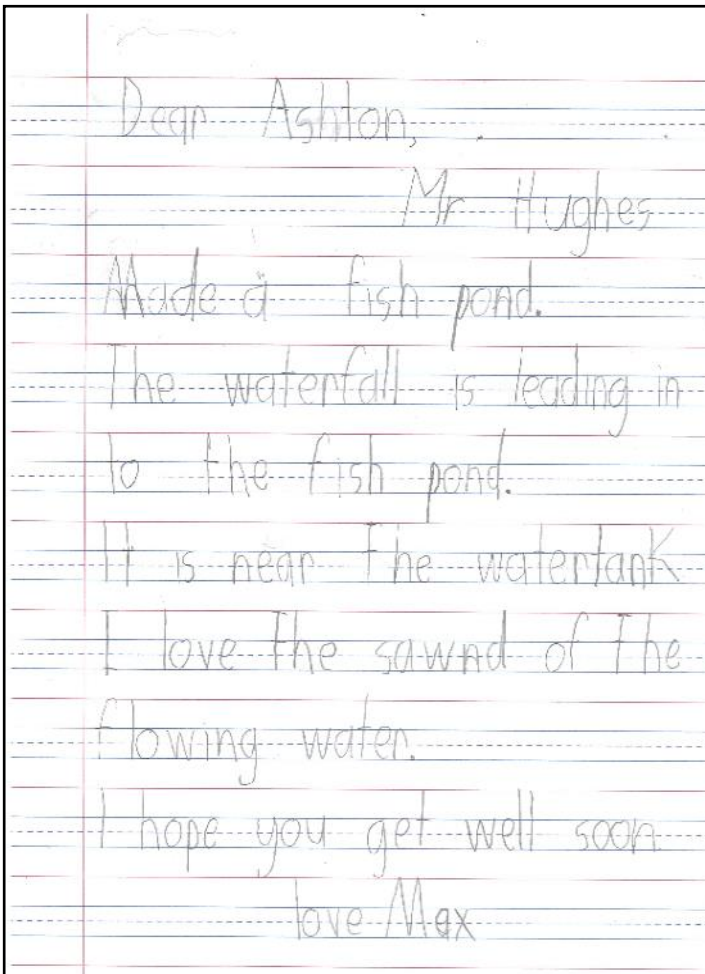 Dear Ashton,
Mr Hughes
Made a fish pond.
The waterfall is leading in
to the fish pond.
It is near the watertank
I love the sawnd of the
flowing water.
I hope you get well soon
love Max